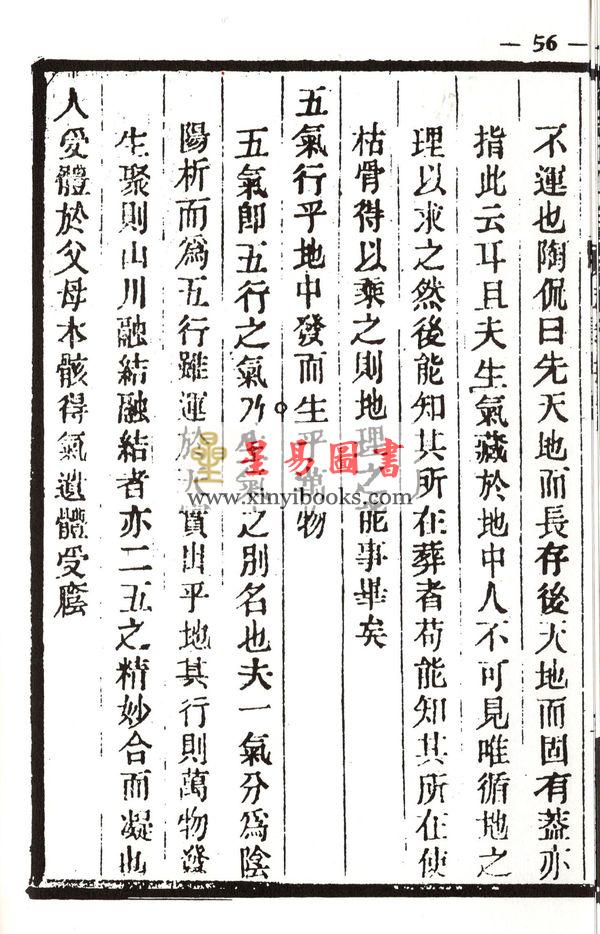 — 56 —
不運也陶侃曰先天地而長存後天地而固有蓋亦
指此云耳且夫生氣藏於地中人不可見唯循地之
理以求之然後能知其所在葬者苟能知其所在使
枯骨得以乘之則地理之能事畢矣
五氣行乎地中發而生乎萬物
五氣即五行之氣乃生氣之別名也夫一氣分為陰
陽析而為五行雖運於天實出乎地其行則萬物發
生聚則山川融結融結者亦二五之精妙合而凝也
人受體於父母本骸得氣遺體受廕
星易圖書
www.xinyibooks.com